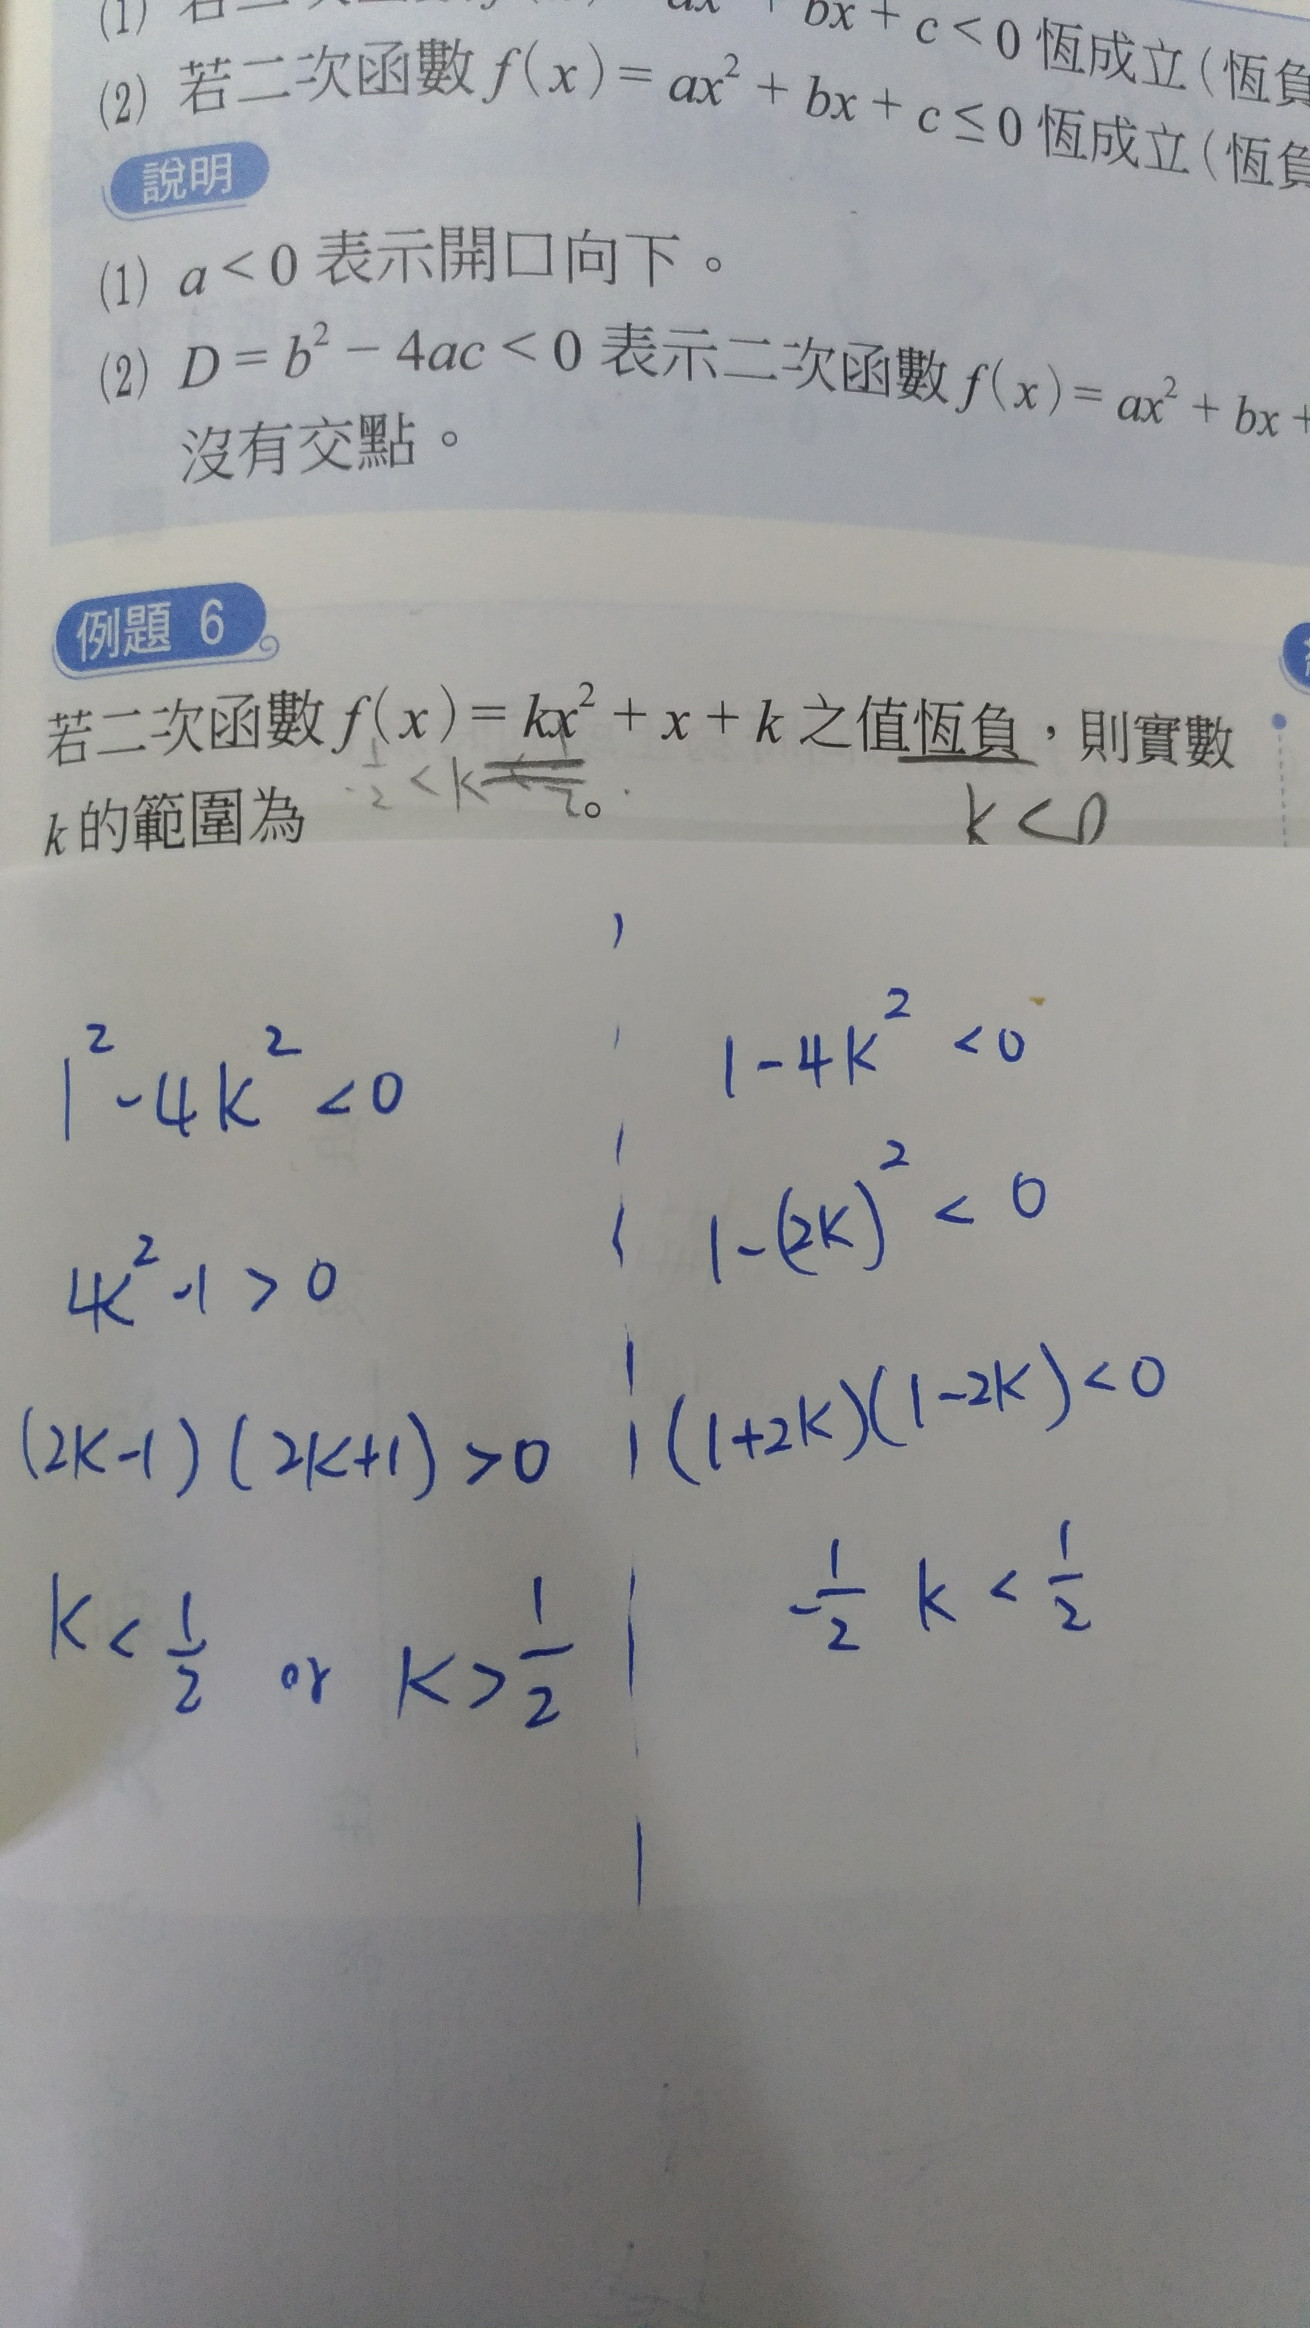 (1)
bx + c < 0 恆成立(恆負
(2) 若二次函數 f(x) = ax² + bx + c ≤ 0 恆成立(恆負
說明
(1) a < 0 表示開口向下。
(2) D = b² − 4ac < 0 表示二次函數 f(x) = ax² + bx +
沒有交點。
例題 6
若二次函數 f(x) = kx² + x + k 之值恆負,則實數
k 的範圍為 -1/2 < k 。
k < 0
1² - 4k² < 0
4k² - 1 > 0
(2k-1)(2k+1) > 0
k < 1/2 or k > 1/2
1 - 4k² < 0
1 - (2k)² < 0
(1+2k)(1-2k) < 0
-1/2 k < 1/2